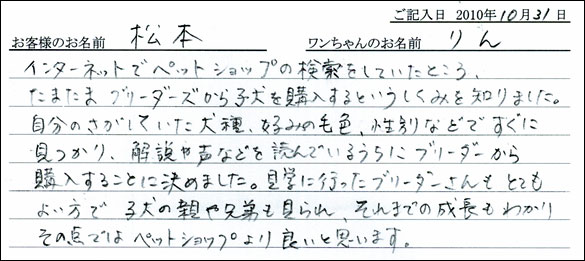 ご記入日 2010年10月31日
お客様のお名前 松本 ワンちゃんのお名前 りん
インターネットでペットショップの検索をしていたところ、
たまたま ブリーダーズから子犬を購入するというしくみを知りました。
自分のさがしていた犬種、好みの毛色、性別などですぐに
見つかり、解説や声などを読んでいるうちにブリーダーから
購入することに決めました。見学に行ったブリーダーさんも とても
よい方で 子犬の親や兄弟も見られ、それまでの成長もわかり
その点ではペットショップより良いと思います。